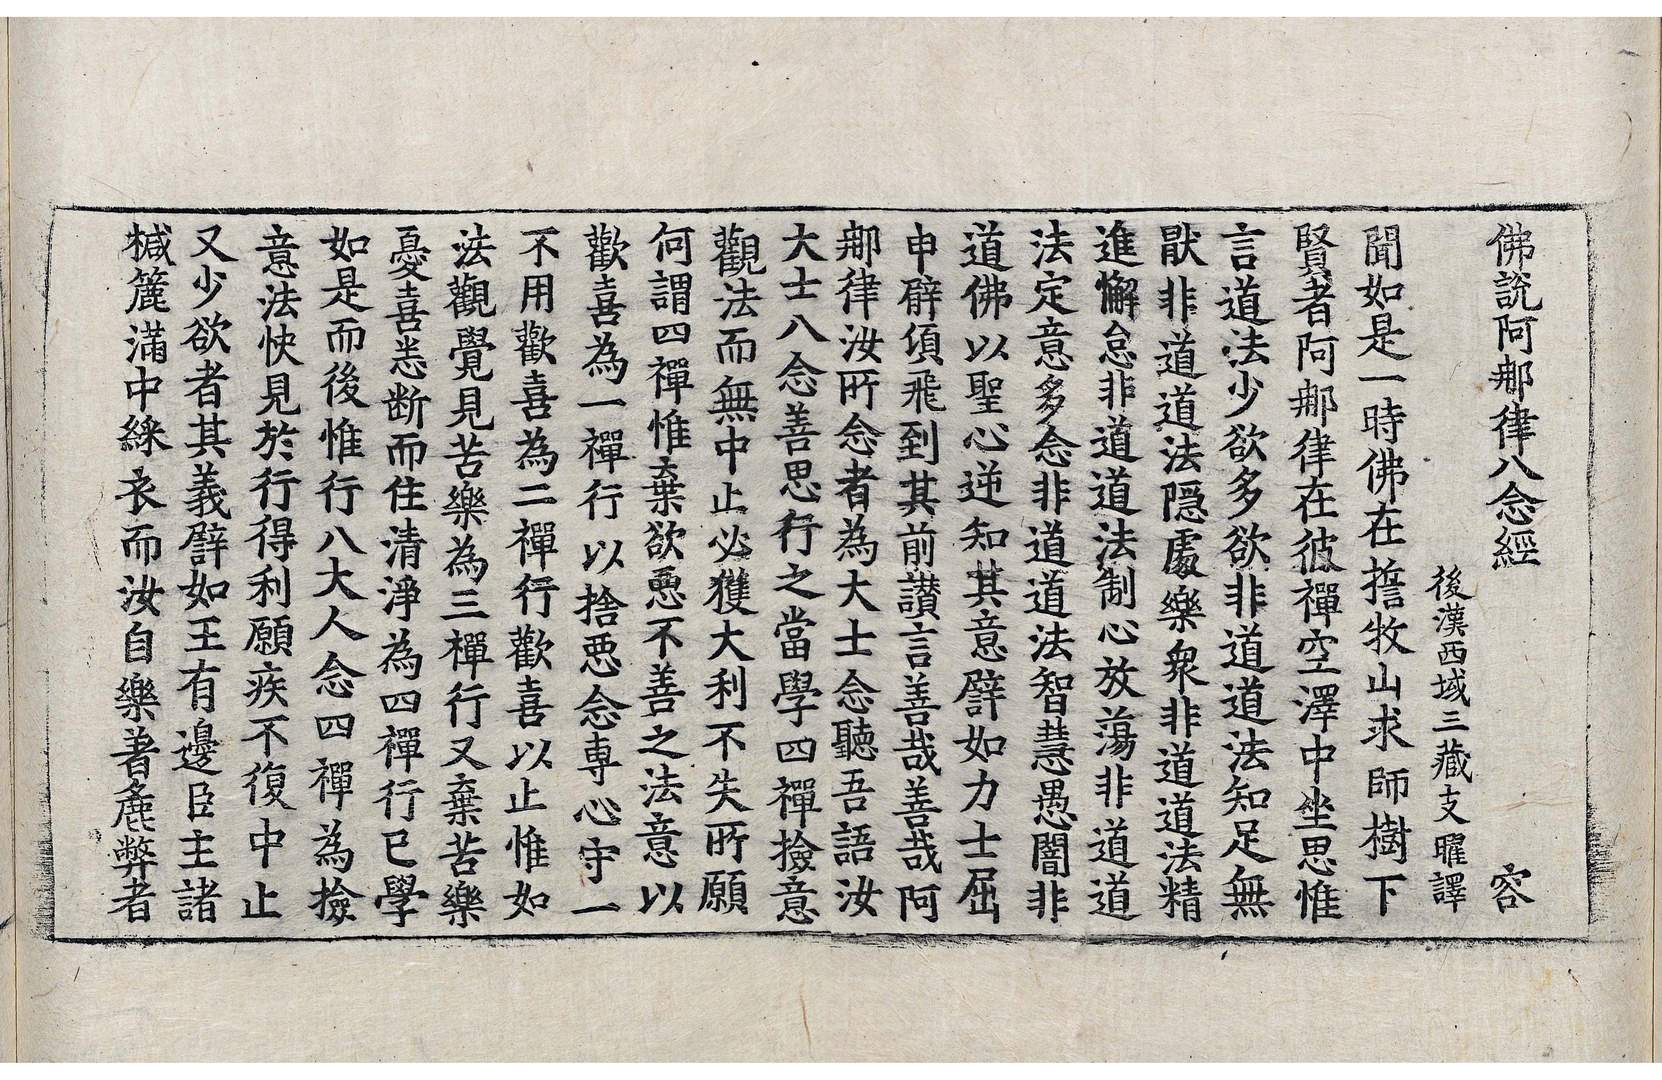 佛說阿𨚗律八念經　容
後漢西域三藏支曜譯
聞如是一時佛在擔牧山求師樹下
賢者阿𨚗律在彼禪空澤中坐思惟
言道法少欲多欲非道道法知足無
猒非道道法隱處樂衆非道道法精
進懈怠非道道法制心放蕩非道道
法定意多念非道道法智慧愚闇非
道佛以聖心逆知其意譬如力士屈
申臂須飛到其前讃言善哉善哉阿
𨚗律汝所念者為大士念聽吾語汝
大士八念善思行之當學四禪撿意
觀法而無中止必獲大利不失所願
何謂四禪惟棄欲惡不善之法意以
歡喜為一禪行以捨惡念專心守一
不用歡喜為二禪行歡喜以止惟如
法觀覺見苦樂為三禪行又棄苦樂
憂喜悉断而住清淨為四禪行已學
如是而後惟行八大人念四禪為撿
意法快見於行得利願疾不復中止
又少欲者其義譬如王有邊臣主諸
椷簏滿中綵衣而汝自樂著麁弊者